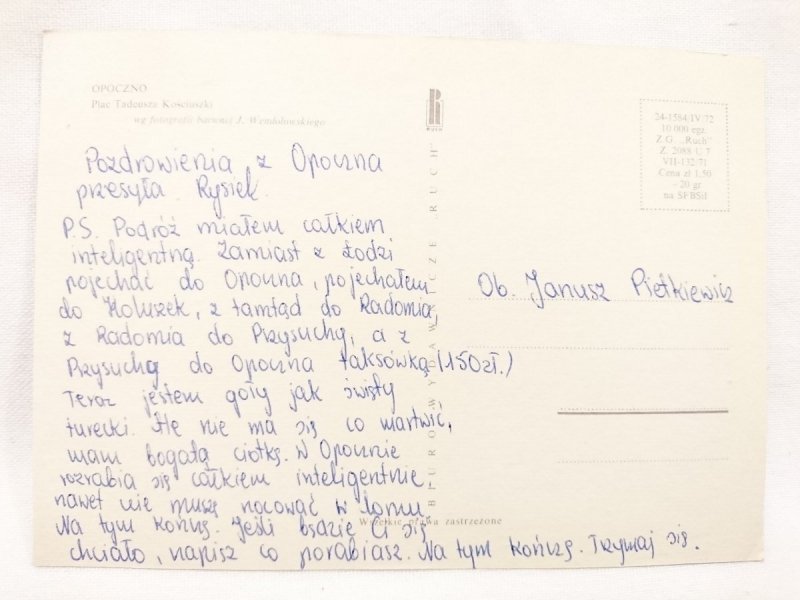 OPOCZNO
Plac Tadeusza Kościuszki
wg fotografii barwnej J. Wendołowskiego
Pozdrowienia z Opoczna
przesyła Rysiek.
P.S. Podróż miałem całkiem
inteligentną. Zamiast z Łodzi
pojechać do Opoczna, pojechałem
do Koluszek, z tamtąd do Radomia,
z Radomia do Przysuchy, a z
Przysuchy do Opoczna taksówką (150zł.)
Teraz jestem goły jak święty
turecki. Ale nie ma się co martwić,
mam bogatą ciotkę. W Opocznie
rozrabia się całkiem inteligentnie,
nawet nie muszę nocować w łomu.
Na tym kończę. Jeśli będzie Ci się
chciało, napisz co porabiasz. Na tym kończę. Trzymaj się.
BIURO WYDAWNICZE „RUCH"
RUCH
Wszelkie prawa zastrzeżone
24-1584/IV/72
10.000 egz.
Z.G. „Ruch"
Z. 2088 U-7
VII-132-71
Cena zł 1,50
+20 gr
na SFBSiI
Ob. Janusz Pietkiewicz